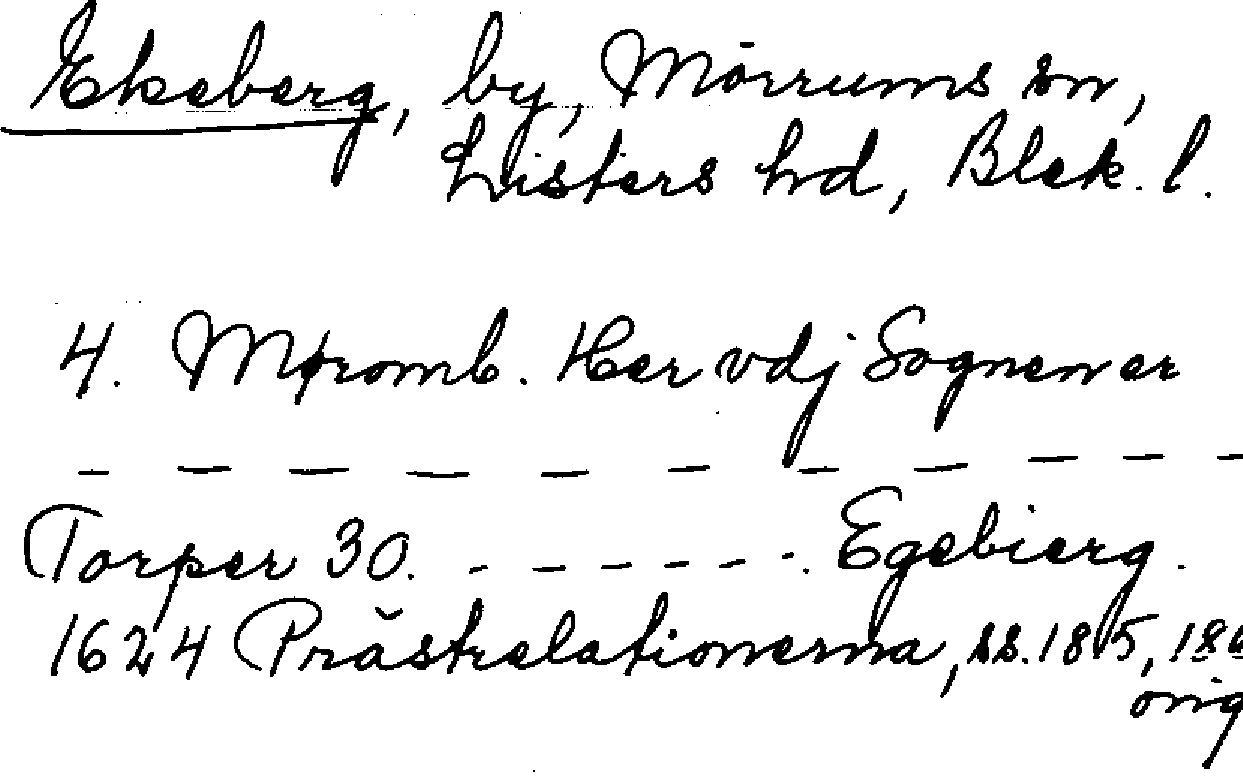 Ekeberg, by, Mörrums sn,
Listers hd, Blek. l.
4. Møromb. Her vdj Sognen er
— — — — — — — — — — —
Torper 30. - - - - - - . Egebierg.
1624 Prästrelationerna, ss. 185, 186
orig